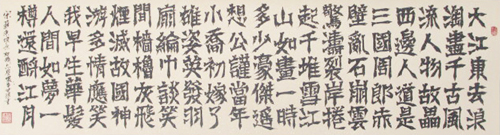 大江東去浪
淘盡千古風
流人物故壘
西邊人道是
三國周郎赤
壁亂石
驚濤裂岸捲
起千堆雪江
山如畫一時
多少豪傑遙
想公瑾當年
小喬初嫁了
雄姿英發羽
扇綸巾談笑
間檣櫓灰飛
煙滅故國神
遊多情應笑
我早生華髮
人間如夢一
樽還酹江月